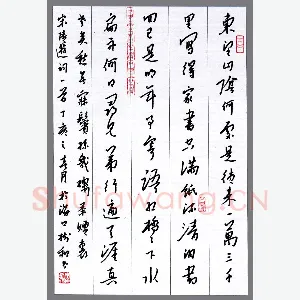 東望山陰何處是往來一萬三千
里寫得家書空滿紙流清淚書
回已是明年事寄語紅橋橋下水
扁舟何日尋兄弟行遍天涯真
老矣愁無寐鬢絲幾縷茶煙裏
宋陸游詞一首丁亥之春月於海口
Shufawang.CN